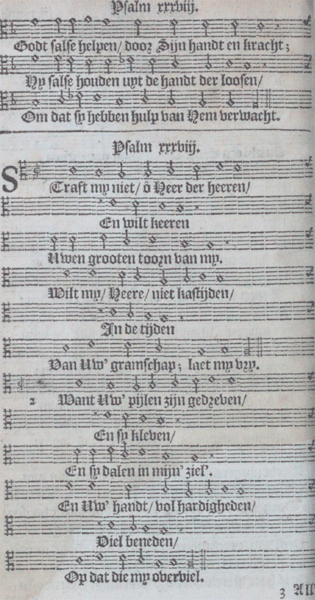 Psalm xxxviij.
Godt salse helpen/ door Zijn handt en kracht;
Hy salse houden uyt de handt der loosen/
Om dat sy hebben hulp van Hem verwacht.
Psalm xxxviij.
Straft my niet/ ô Heer der heeren/
En wilt keeren
Uwen grooten toorn van my.
Wilt my/ Heere/ niet kastijden/
In de tijden
Van Uw' gramschap; laet my vry.
2 Want Uw' pijlen zijn gedreven/
En sy kleven/
En sy dalen in mijn' ziel'.
En Uw' handt/ vol hardigheden/
Viel beneden/
Op dat die my overviel.
3 All